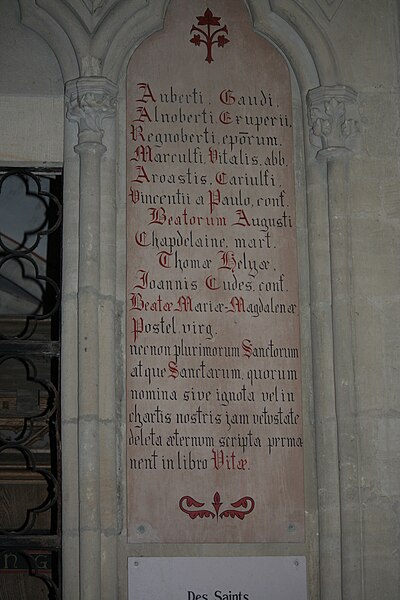 Auberti, Gaudi,
Alnoberti Eruperii,
Regnoberti, epōrum.
Marculfi, Vitalis, abb.
Aroastis, Cariulfi,
Vincentii a Paulo, conf.
Beatorum Augusti
Chapdelaine, mart.
Thomæ Helyæ,
Joannis Eudes, conf.
Beatæ Mariæ-Magdalenæ
Postel, virg.
necnon plurimorum Sanctorum
atque Sanctarum, quorum
nomina sive ignota vel in
chartis nostris jam vetustate
deleta æternum scripta perma
nent in libro Vitæ.
Des Saints